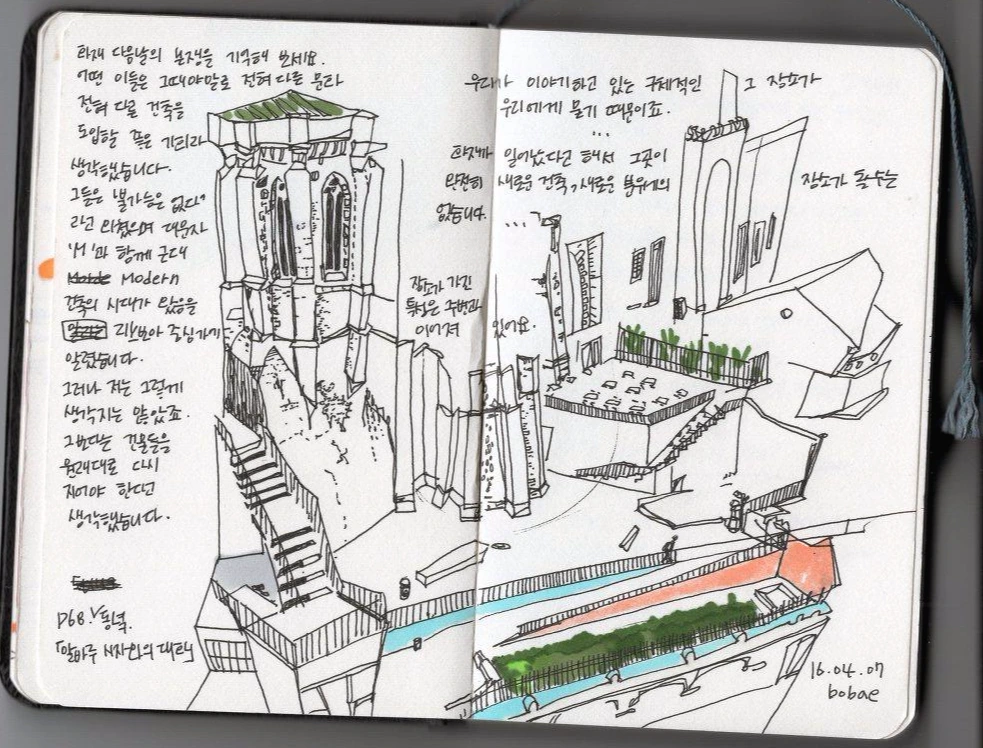 화재 다음날의 논쟁을 기억해 보세요.
어떤 이들은 그때야말로 전혀 다른 문화
전혀 다른 건축을
도입할 좋은 기회라
생각했습니다.
그들은 "불가능은 없다"
라고 외쳤으며 대문자
'M'과 함께 근대
Modern
건축의 시대가 왔음을
리스보아 중심가에
알렸습니다.
그러나 저는 그렇게
생각지는 않았죠.
그보다는 건물들을
원래대로 다시
지어야 한다고
생각했습니다.
P68. 동녘.
「알바루 시자와의 대화」
우리가 이야기하고 있는 구체적인 그 장소가
우리에게 묻기 때문이죠.
...
화재가 일어났다고 해서 그곳이
완전히 새로운 건축, 새로운 분위기의 장소가 될 수는
없습니다.
...
장소가 가진
특성은 주변과
이어져 있어요.
16.04.07
bobae